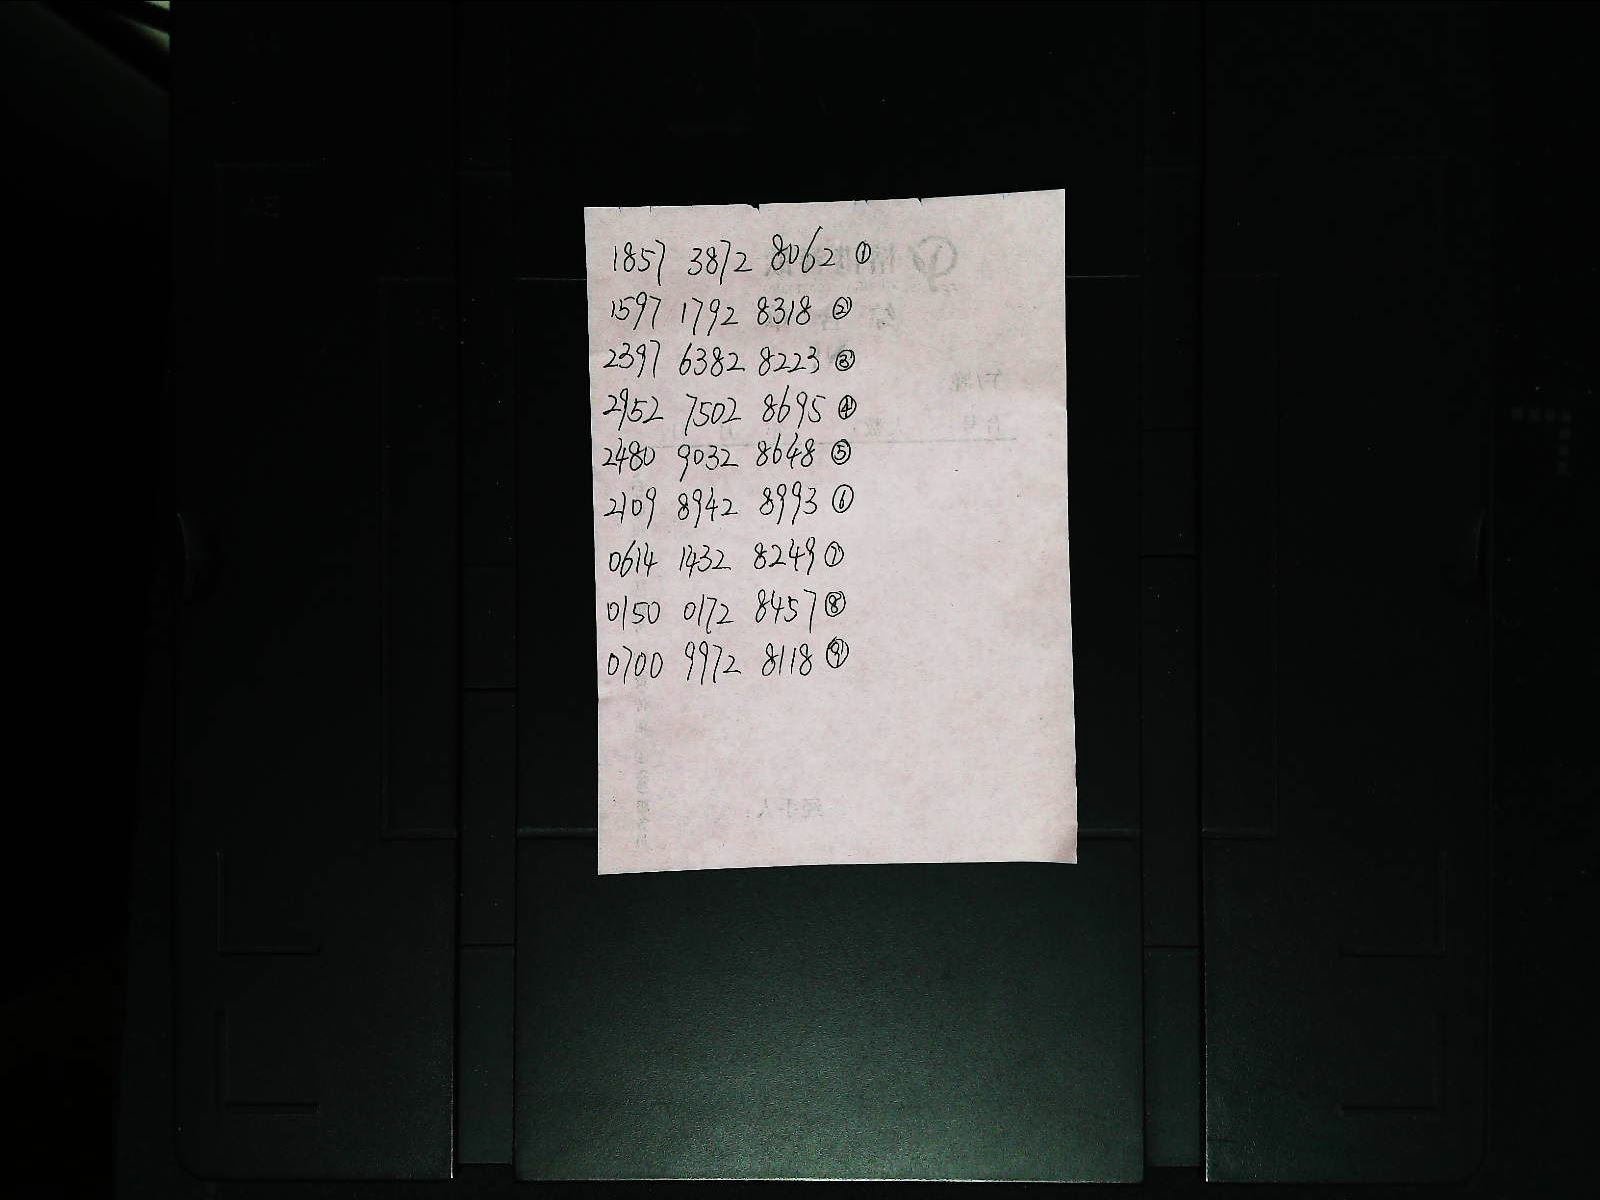 1857 3872 8062 ①
1597 1792 8318 ②
2397 6382 8223 ③
2952 7502 8695 ④
2480 9032 8648 ⑤
2109 8942 8993 ⑥
0614 1432 8249 ⑦
0150 0172 8457 ⑧
0700 9972 8118 ⑨